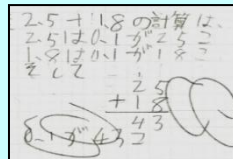 2.5+1.8の計算は、
2.5は0.1が25こ
1.8は0.1が18こ
そして
25
+18
43
0.1が43こ